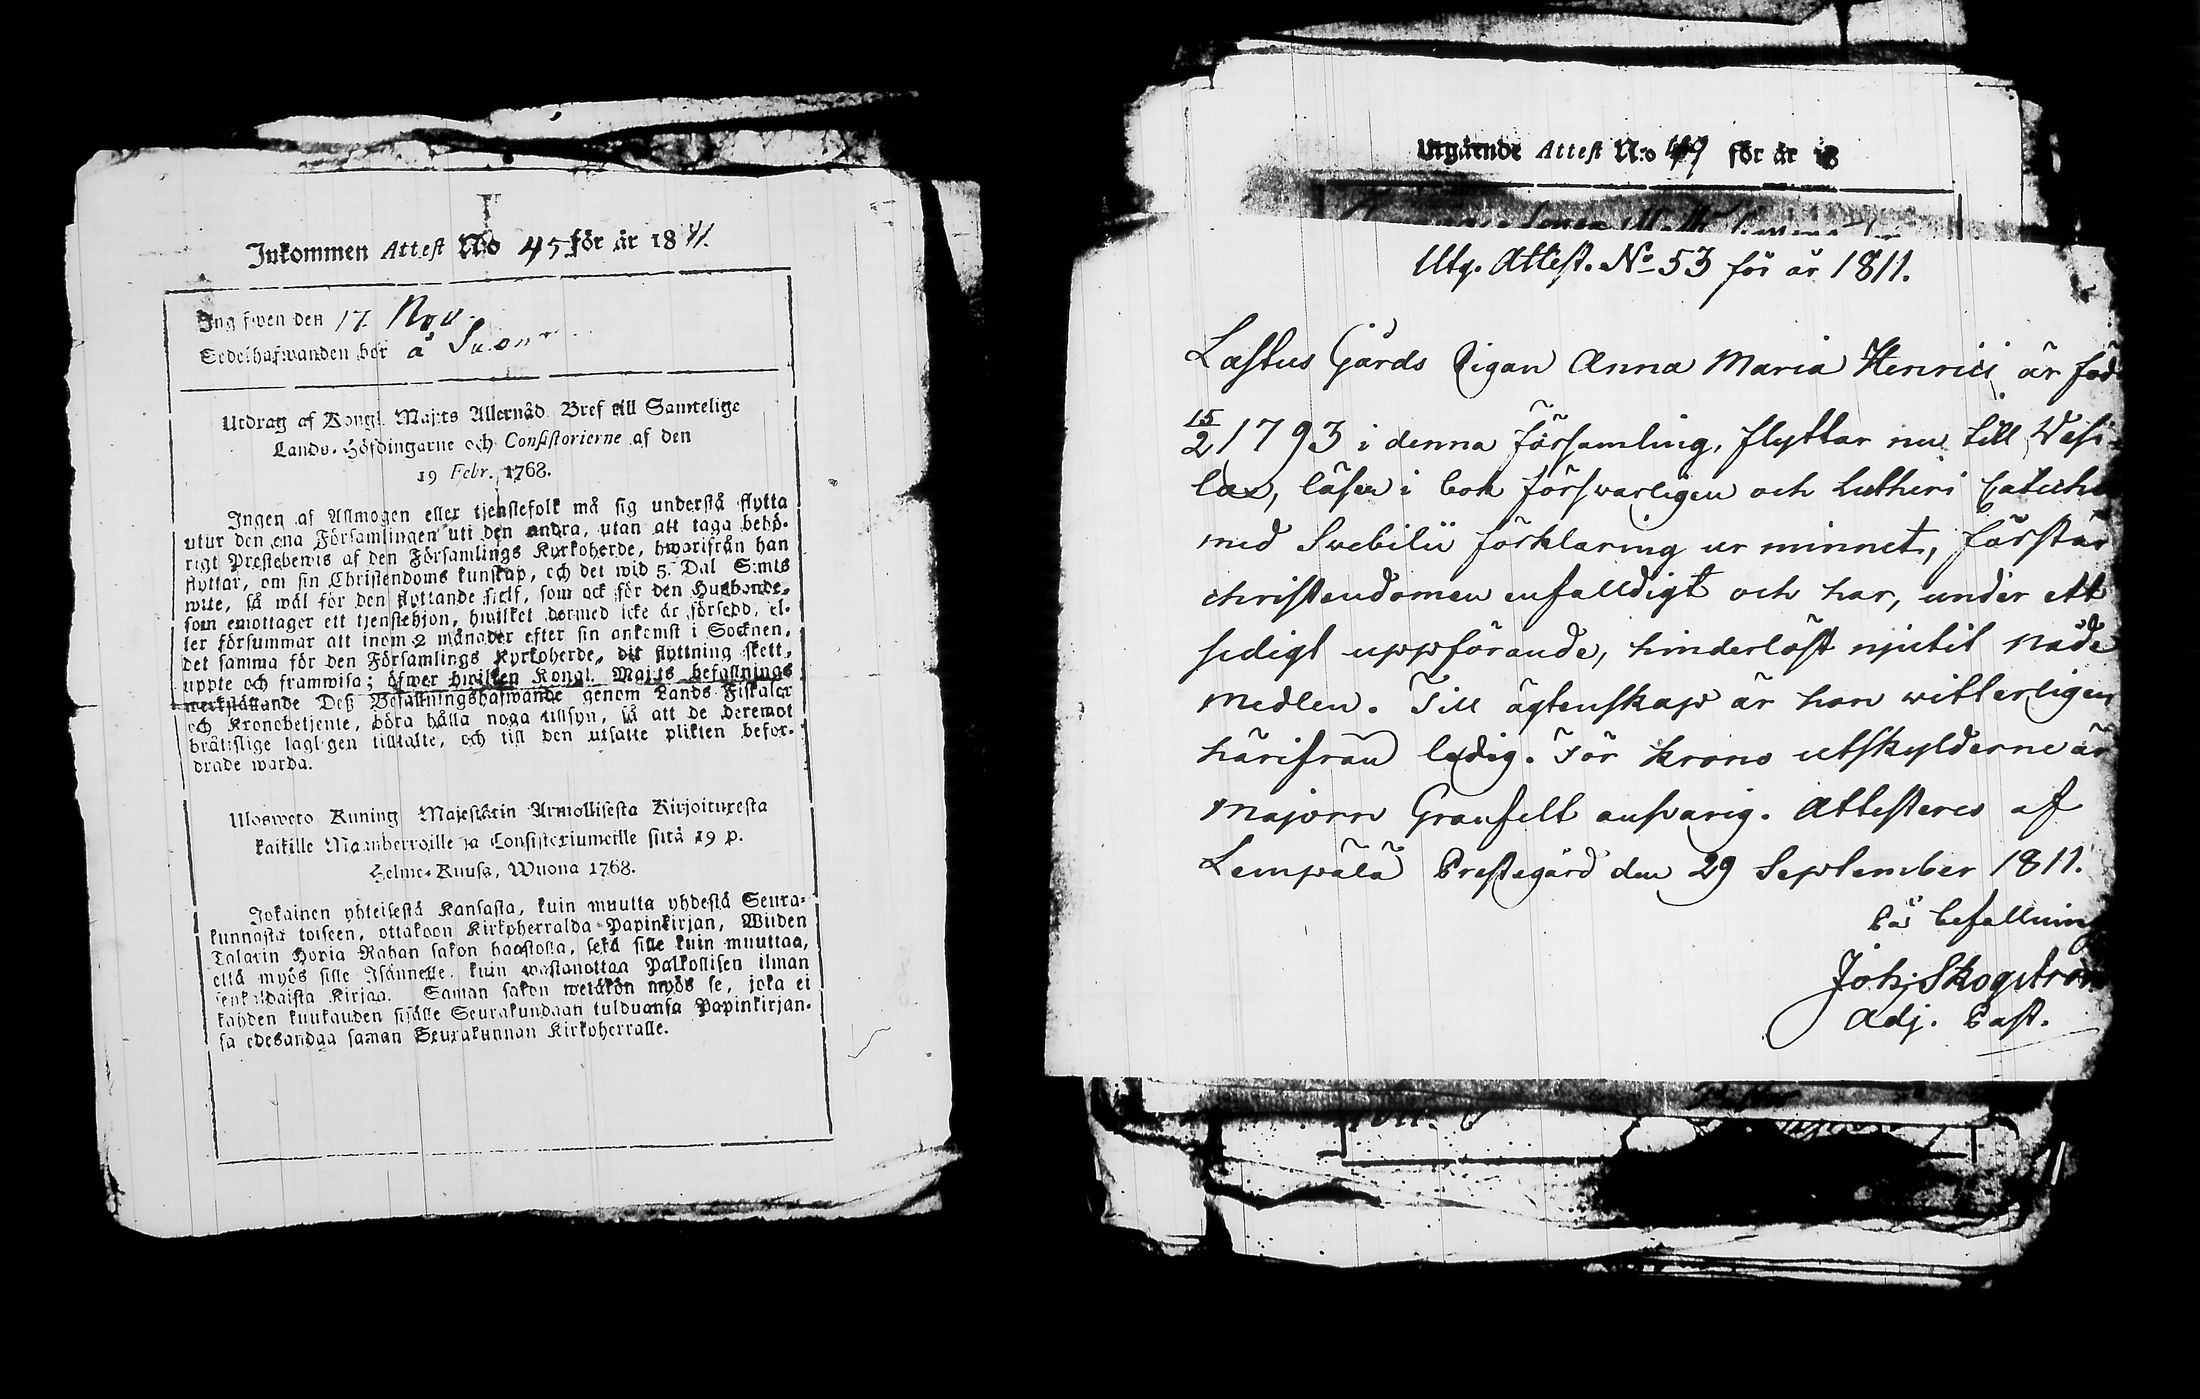 Inkommen Attest No 45 för år 1811.
Ingifwen den 17 Nov.
Sedelhafwanden bor å
Utdrag af Kongl. Maj:ts Allernåd. Bref till Samtelige
Lands-Höfdingarne och Consistorierne af den
19 Febr. 1768.
Ingen af Allmogen eller tjenstefolk må sig understå flytta
utur den ena Församlingen uti den andra, utan att taga behö-
rigt Prestebewis af den Församlings Kyrkoherde, hwarifrån han
flyttar, om sin Christendoms kunskap, och det wid 5. Dal. S:mts
wite, så wäl för den flyttande sielf, som ock för den Husbonde,
som emottager ett tjenstehjon, hwilket dermed icke är försedd, el-
ler försummar att inom 2 månader efter sin ankomst i Socknen,
det samma för den Församlings Kyrkoherde, dit flyttning skett,
uppte och framwisa; öfwer hwilken Kongl. Maj:ts befallnings
werkställande Deß Befallningshafwande genom Lands-Fiskaler
och Kronobetjente, böra hålla noga tillsyn, så att de deremot
bråttslige lagligen tilltalte, och till den utsatte plikten befor-
drade warda.
Ulosweto Kuning. Majestätin Armollisesta Kirjoituxesta
kaikille Maanherroille ja Consistoriumeille siitä 19 p.
Helme-Kuusa, Wuona 1768.
Jokainen yhteisestä Kansasta, kuin muutta yhdestä Seura-
kunnasta toiseen, ottakoon Kirkoherralda Papinkirjan, Wiiden
Talarin Hopia Rahan sakon haastolla, sekä sille kuin muuttaa,
että myös sille Isännelle, kuin wastanottaa Palkollisen ilman
senkaldaista Kirjaa. Saman sakon wetäkön myös se, joka ei
kahden kuukauden sisälle Seurakundaan tulduansa Papinkirjan-
sa edesandaa saman Seurakunnan Kirkoherralle.
Utgående Attest N:o 49 för år 18
Utg. Attest. No 53 för år 1811.
Lastus Gårds Pigan Anna Maria Henrici är föd
15/2 1793 i denna församling, flyttar nu till Wesi-
lax, läser i bok försvarligen och Lutheri Cateche
med Svebilii förklaring ur minnet, förstår
christendomen enfalldigt och har, under ett
sedigt uppförande, hinderlöst njutit nåde
medlen. Till ägtenskap är hon witterligen
härifrån ledig. För krono utskylderne är
Majorn Granfelt ansvarig. Attesteres af
Lempälä Prestegård den 29 September 1811.
På befallning
Joh. Skogström
Adj. Past.